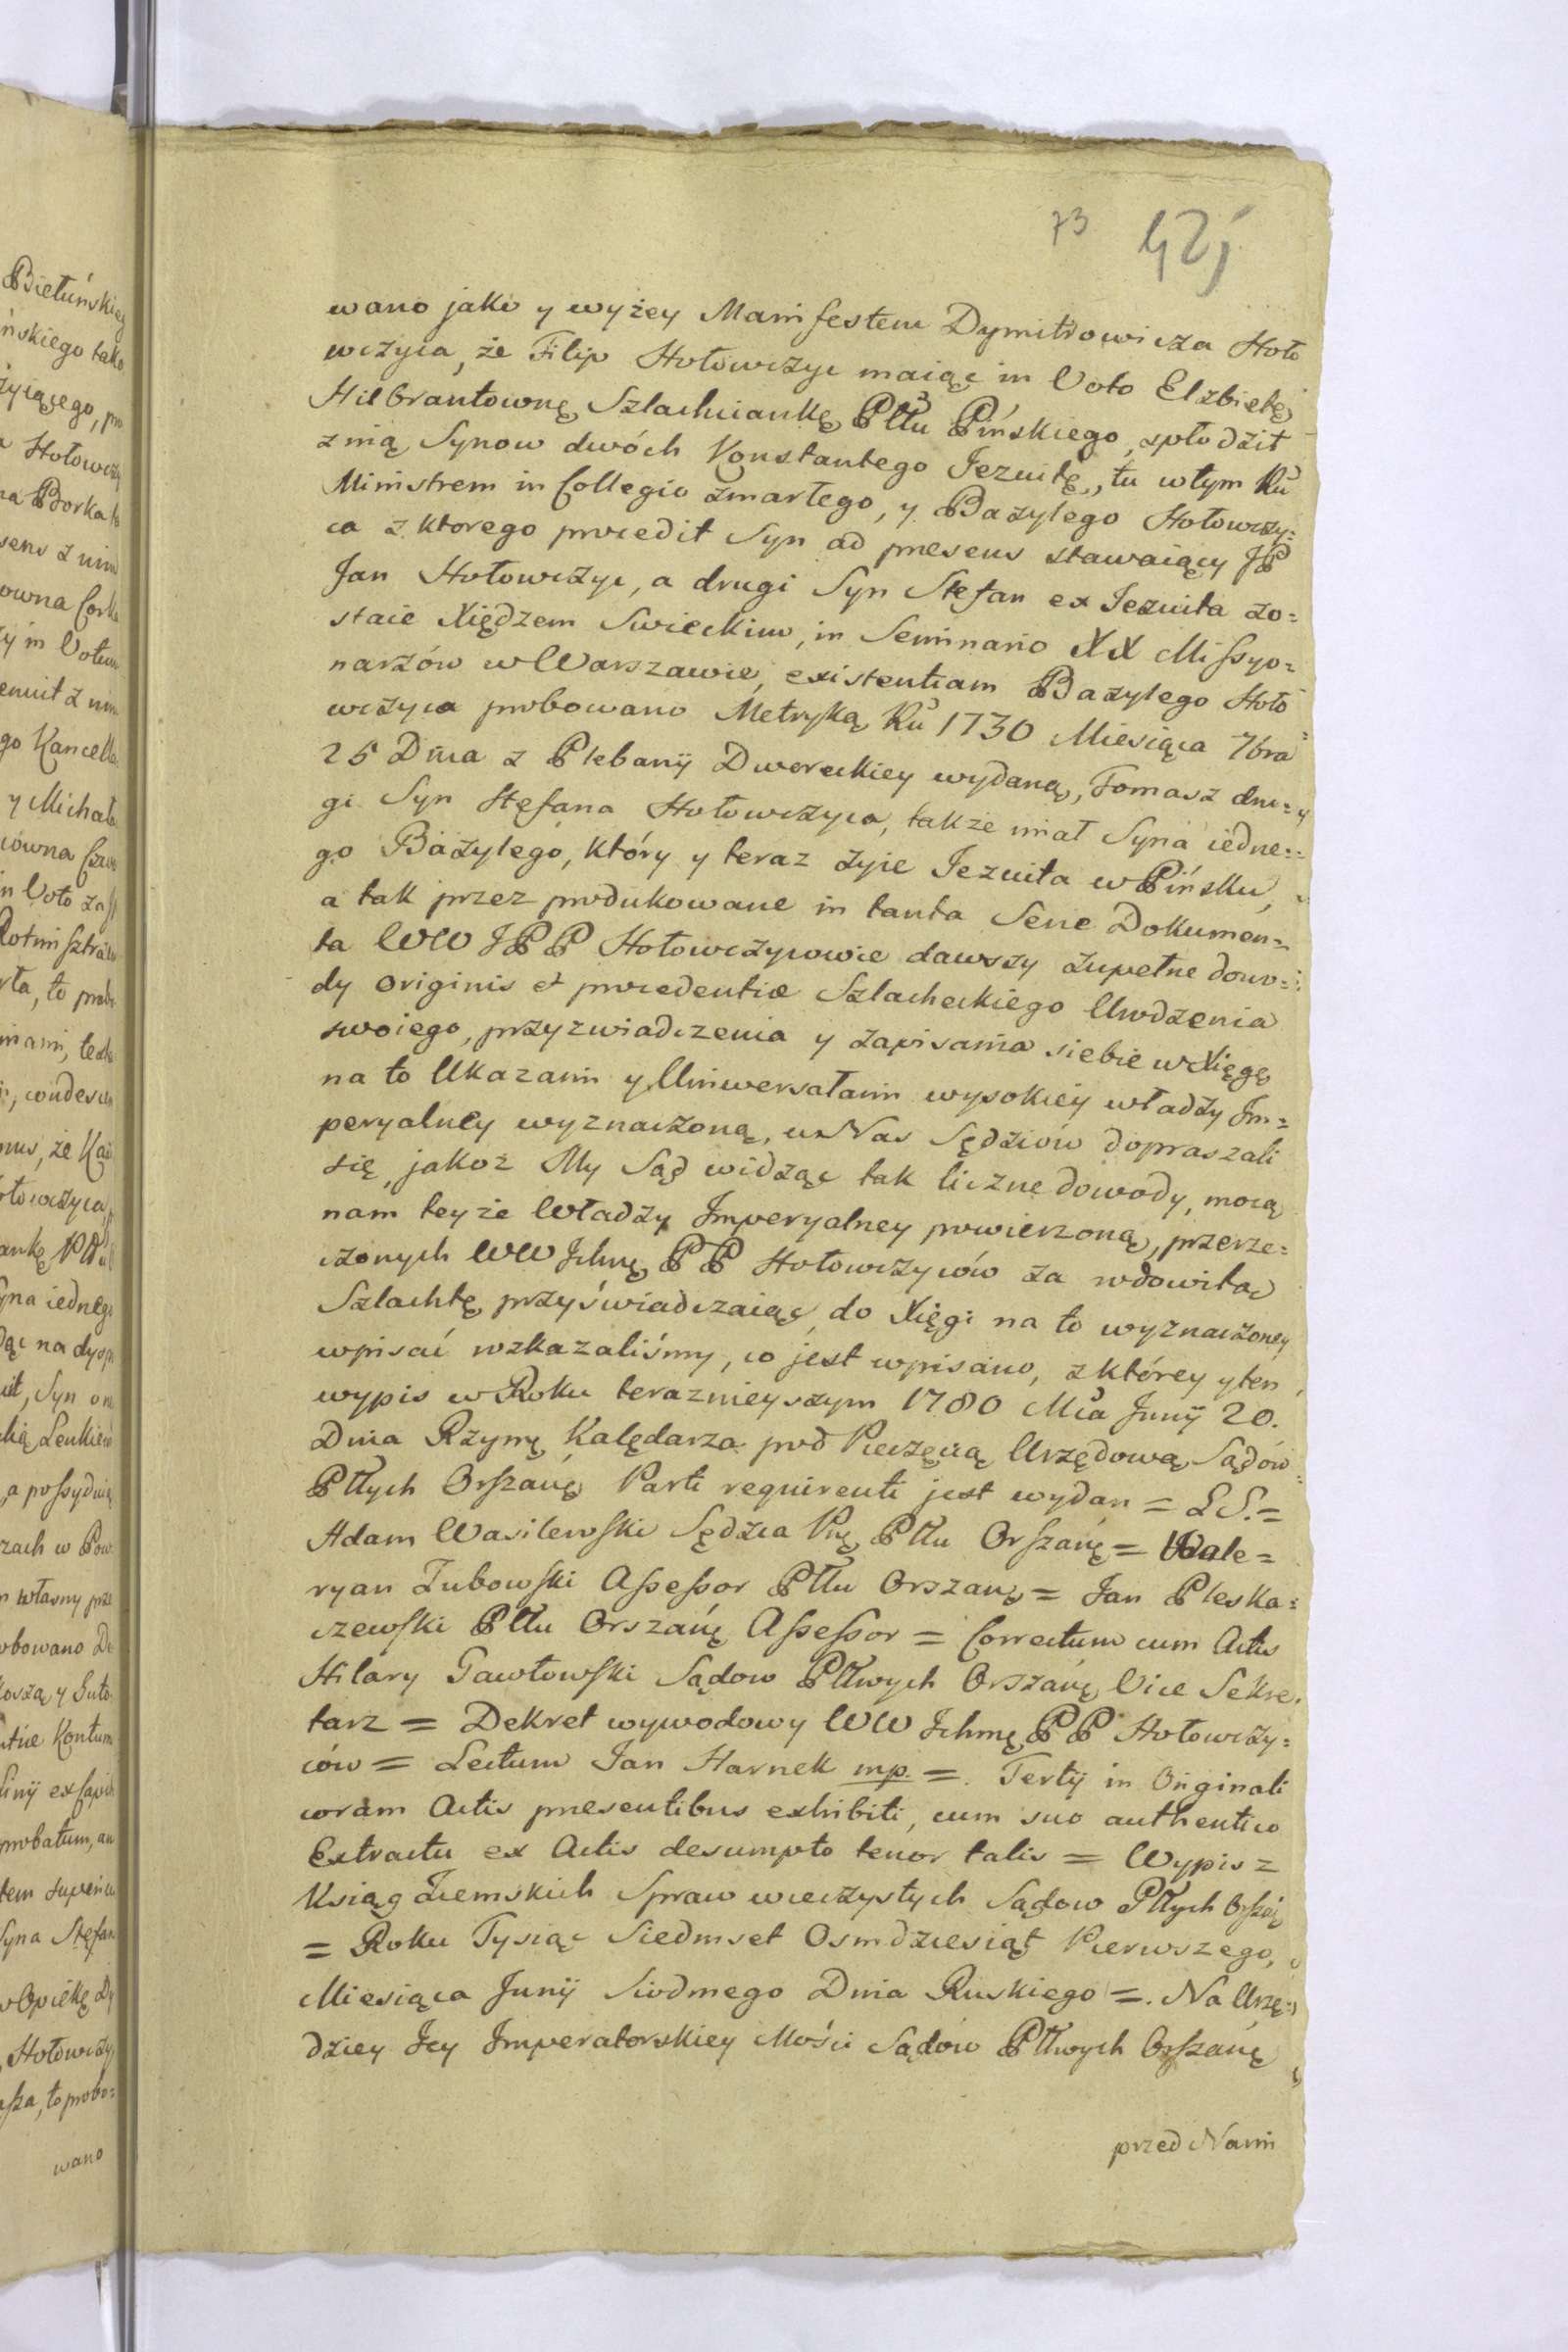 73 42j
wano jako y wyżey Manifestem Dymitrowicza Hoło
wczyca, że Filip Hołowczyc maiąc in Voto Elzbietę
Hilbrantownę Szlachciankę Pttu Pińskiego, spłodził
z nią Synow dwóch Konstantego Jezuitę, tu w tym Ru
Ministrem in Collegio zmarłego, y Bazylego Hołowczy=
ca z ktorego procedit Syn ad presens stawaiący JP
Jan Hołowczyc, a drugi Syn Stefan ex Jezuita zo=
staie Xiędzem Swieckim, in Seminario XX Missyo=
narzów w Warszawie, existentiam Bazylego Hoło
wczyca probowano Metryką Ru 1730 Miesiąca 7bra
25 Dnia z Plebanÿ Dworeckiey wydaną, Tomasz dru=
gi Syn Stefana Hołowczyca, także miał Syna iedne=
go Bazylego, który y teraz żyie Jezuita w Pińsku,
a tak przez produkowane in tanta Serie Dokumen=
ta WW JPP Hołowczycowie dawszy zupełne dowo=
dy originis et procedentiæ Szlacheckiego Urodzenia
swoiego, przyzwiadczenia y zapisania siebie w Xięgę
na to Ukazami y Uniwersałami wysokiey władzy Jm=
peryalney wyznaczoną, u Nas Sędziów dopraszali
się, jakoż My Sąd widząc tak liczne dowody, mocą
nam teyże Władzy Jmperyalney powierzoną, przerze=
czonych WW Jchmę PP Hołowczyców za rodowitą
Szlachtę przyświadczaiąc, do Xięgi na to wyznaczoney
wpisać rozkazaliśmy, co jest wpisano, z którey y ten
wypis w Roku teraznieyszym 1780 Mca Junÿ 20.
Dnia Rzymę Kalędarza pod Pieczęcią Urzędową Sądów
Pttych Orszanę Parti requirenti jest wydan = LS. =
Adam Wasilewski Sędzia Pttu Orszanę = Wale=
ryan Zubowski Assessor Pttu Orszanę = Jan Pleska=
czewski Pttu Orszanę Assessor = Correctum cum Actis
Hilary Gawłowski Sądow Pttwych Orszanę Vice Sekre
tarz = Dekret wywodowy WW Jchmę PP Hołowczy=
ców = Lectum Jan Harnek mp. = Tertÿ in Originali
coram Actis presentibus exhibiti, cum suo authentico
Extractu ex Actis desumpto tenor talis = Wypis z
Ksiąg Ziemskich Spraw wieczystych Sądow Pttych Orszań
= Roku Tysiąc Siedmset Osmdziesiąt Pierwszego,
Miesiąca Junÿ Siodmego Dnia Ruskiego =. Na Urzę=
dziey Jey Jmperatorskiey Mości Sądów Pttwych Orszanę
przed Nami